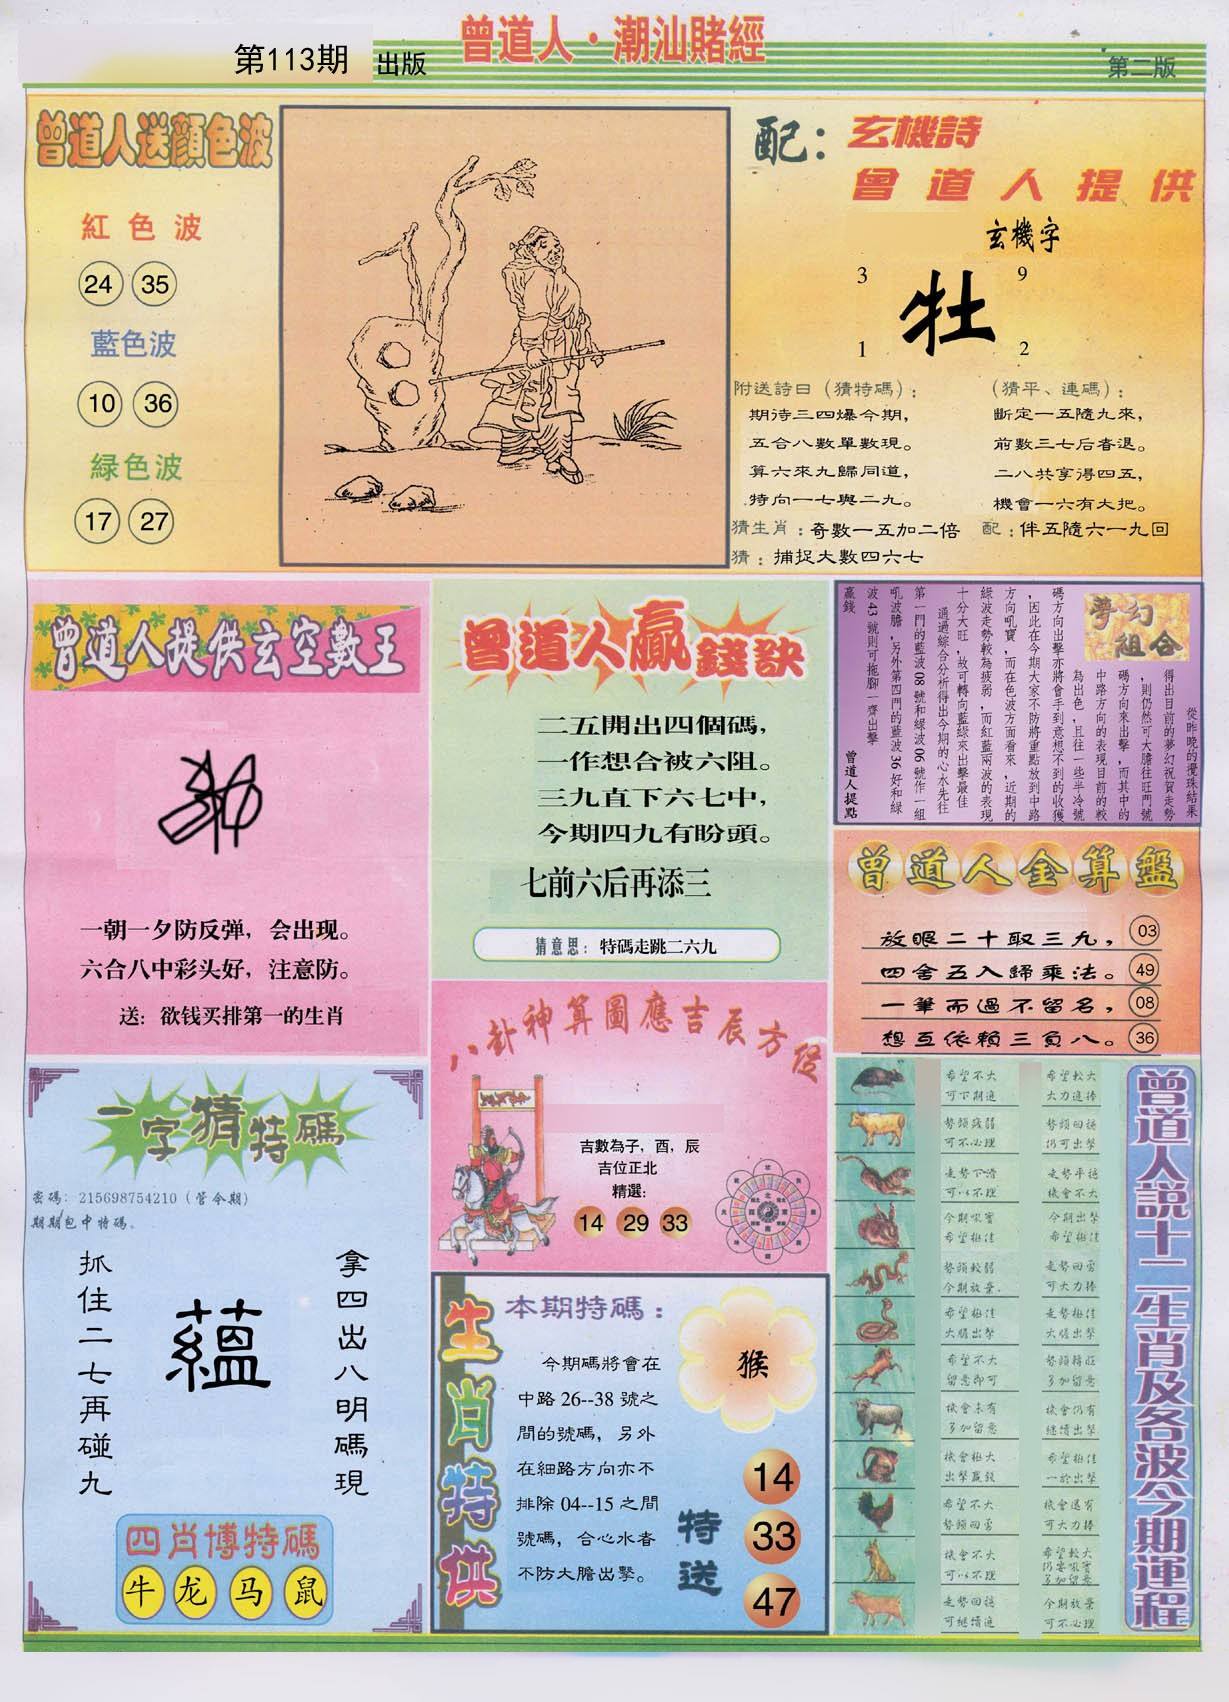 第113期 出版
曾道人·潮汕賭經
第二版
曾道人送顔色波
紅色波
24 35
藍色波
10 36
緑色波
17 27
配：玄機詩
曾道人提供
玄機字
3 9
牡
1 2
附送詩曰（猜特碼）：
期待三四爆今期，
五合八數單數現。
算六來九歸同道，
特向一七與二九。
（猜平、連碼）：
斷定一五隨九來，
前數三七后者退。
二八共享得四五，
機會一六有大把。
猜生肖：奇數一五加二倍
配：伴五隨六一九回
猜：捕捉大數四六七
曾道人提供玄空數王
一朝一夕防反弹，会出现。
六合八中彩头好，注意防。
送：欲钱买排第一的生肖
曾道人贏錢訣
二五開出四個碼，
一作想合被六阻。
三九直下六七中，
今期四九有盼頭。
七前六后再添三
猜意思：特碼走跳二六九
夢幻組合
從昨晚的攪珠結果
得出目前的夢幻祝賀走勢
，則仍然可大膽往旺門號
碼方向來出擊，而其中的
中路方向的表現目前的較
為出色，且往一些半冷號
碼方向出擊亦將會手到意想不到的收獲
，因此在今期大家不防將重點放到中路
方向吼寶，而在色波方面看來，近期的
綠波走勢較為疲弱，而紅藍兩波的表現
十分大旺，故可轉向藍綠來出擊最佳
通過綜合分析得出今期的心水先往
第一門的藍波08號和緑波06號作一組
吼波膽，另外第四門的藍波36好和緑
波43號則可拖腳一齊出擊
贏錢
曾道人提點
曾道人金算盤
放眼二十取三九， 03
四舍五入歸乘法。 49
一筆而過不留名， 08
想互依賴三負八。 36
八卦神算圖應吉辰方位
吉數為子，酉，辰
吉位正北
精選：
14 29 33
一字猜特碼
密碼：215698754210（管令期）
期期包中特碼。
抓住二七再碰九
蘊
拿四出八明碼現
四肖博特碼
牛 龙 马 鼠
生肖特供
本期特碼：
今期碼將會在
中路26--38號之
間的號碼，另外
在細路方向亦不
排除04--15之間
號碼，合心水者
不防大膽出擊。
猴
特送
14
33
47
曾道人説十二生肖及各波今期運程
希望不大
可下期追
希望較大
大力追捧
勢頭殘弱
可不必理
勢頭回穩
仍可出擊
走勢下滑
可以不理
走勢平穩
機會不大
今期吼寶
希望極佳
今期出擊
希望極佳
勢頭較弱
今期放棄.
走勢回勇
可大力捧
希望極佳
大膽出擊
走勢極佳
大膽出擊
希望不大
留意即可
勢頭轉旺
多加留意
機會未有
多加留意
機會仍有
繼續出擊
機會極大
出擊贏錢
希望極佳
一於出擊
希望不大
勢頭回勇
機會還有
可大力捧
機會不大
可以不理
希望較大
仍要吼寶
多加留意
走勢回穩
可繼續追
今期放棄
可不必理